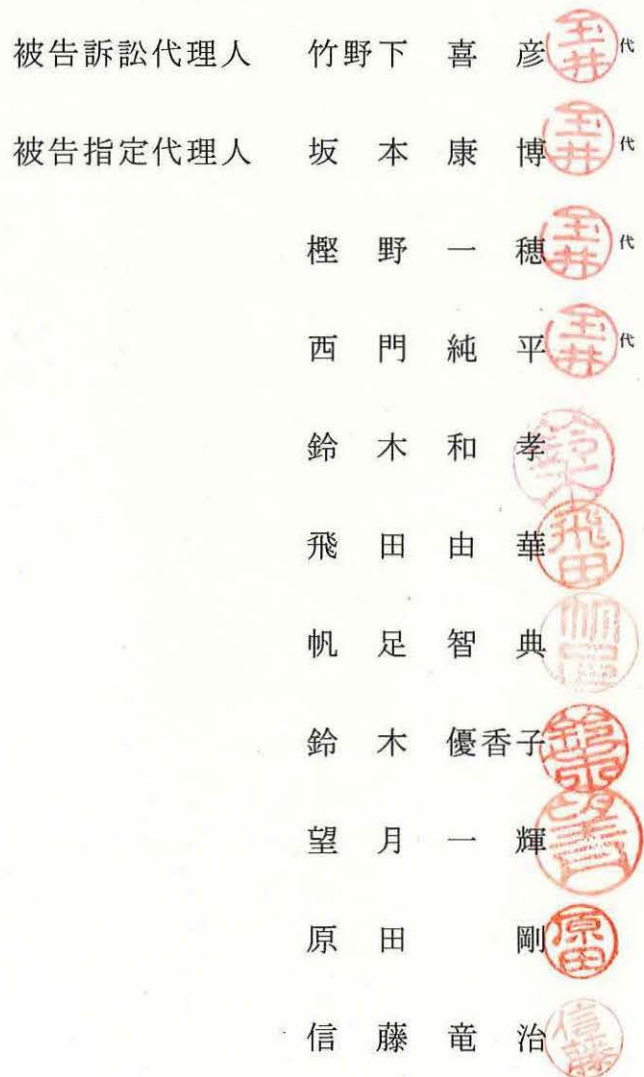 被告訴訟代理人 竹野下 喜 彦 玉井 代
被告指定代理人 坂 本 康 博 玉井 代
樫 野 一 穂 玉井 代
西 門 純 平 玉井 代
鈴 木 和 孝
飛 田 由 華 飛田
帆 足 智 典 帆足
鈴 木 優香子 鈴木
望 月 一 輝 望月
原 田 剛 原田
信 藤 竜 治 信藤